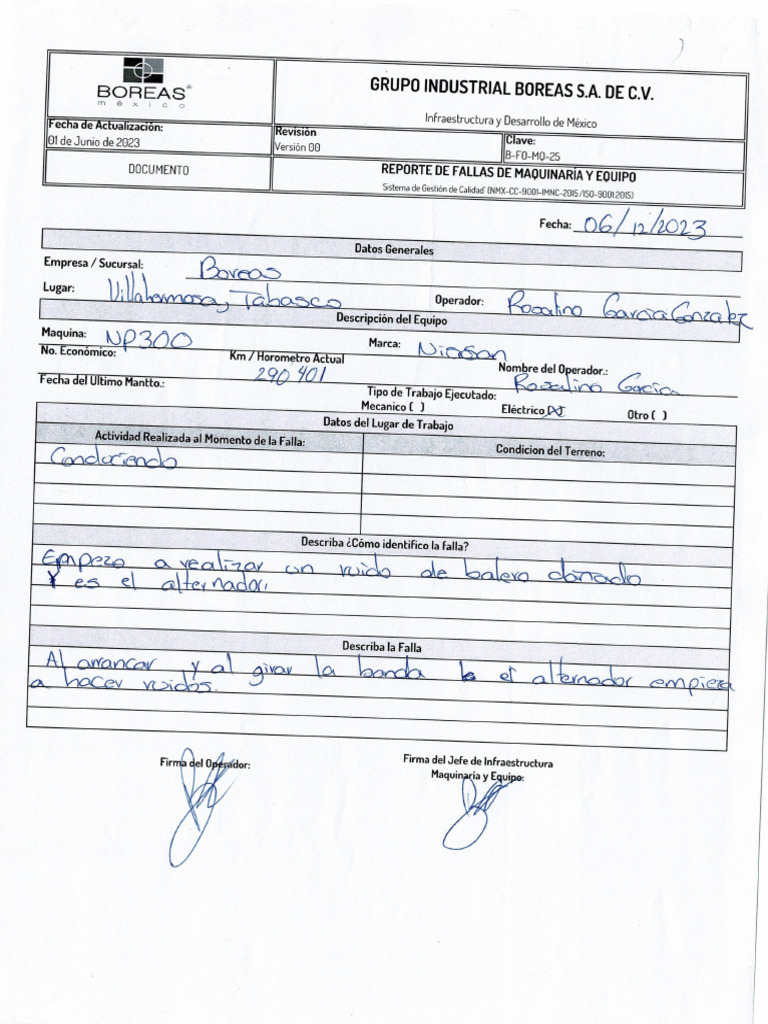 BOREAS®
méxico
GRUPO INDUSTRIAL BOREAS S.A. DE C.V.
Infraestructura y Desarrollo de México
Fecha de Actualización:
01 de Junio de 2023
Revisión
Versión 00
Clave:
B-FO-MQ-25
DOCUMENTO
REPORTE DE FALLAS DE MAQUINARÍA Y EQUIPO
Sistema de Gestión de Calidad (NMX-CC-9001-IMNC-2015/ISO-9001:2015)
Fecha: 06/12/2023
Datos Generales
Empresa / Sucursal: Boreas
Lugar: Villahermosa, Tabasco Operador: Rosalino Garcia Gonzalez
Descripción del Equipo
Maquina: NP300 Marca: Nissan
No. Económico: Km / Horometro Actual 290 401 Nombre del Operador.: Rosalino Garcia
Fecha del Ultimo Mantto.: Tipo de Trabajo Ejecutado:
Mecanico ( ) Eléctrico (x) Otro ( )
Datos del Lugar de Trabajo
Actividad Realizada al Momento de la Falla: Condicion del Terreno:
Conduciendo
Describa ¿Cómo identifico la falla?
Empezo a realizar un ruido de balero dañado
Y es el alternador.
Describa la Falla
Al arrancar y al girar la banda el alternador empieza
a hacer ruidos.
Firma del Operador:
Firma del Jefe de Infraestructura
Maquinaria y Equipo: